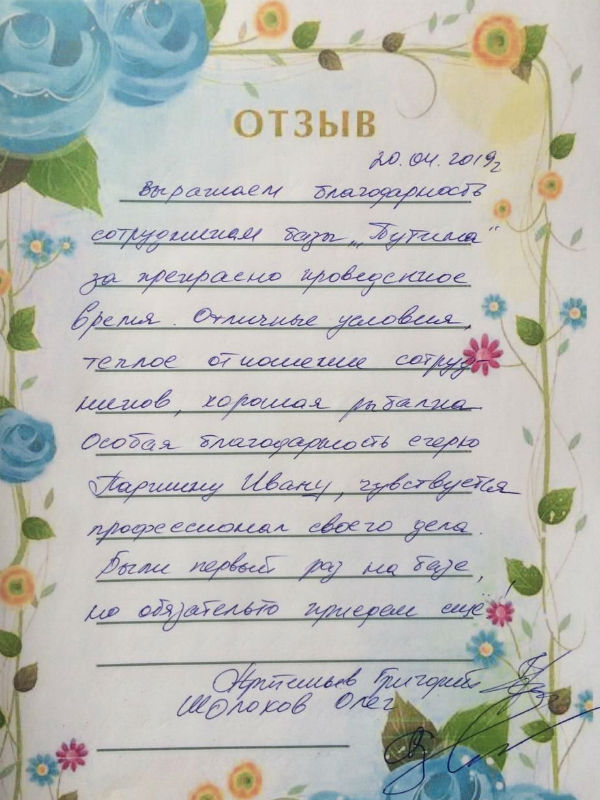 ОТЗЫВ
20.04.2019г
Выражаем благодарность
сотрудникам базы „Путина“
за прекрасно проведенное
время. Отличные условия,
теплое отношение сотруд-
ников, хорошая рыбалка
Особая благодарность егерю
Паршину Ивану, чувствуется
профессионал своего дела.
Были первый раз на базе,
но обязательно приедем еще!
Артемьев Григорий
Шолохов Олег